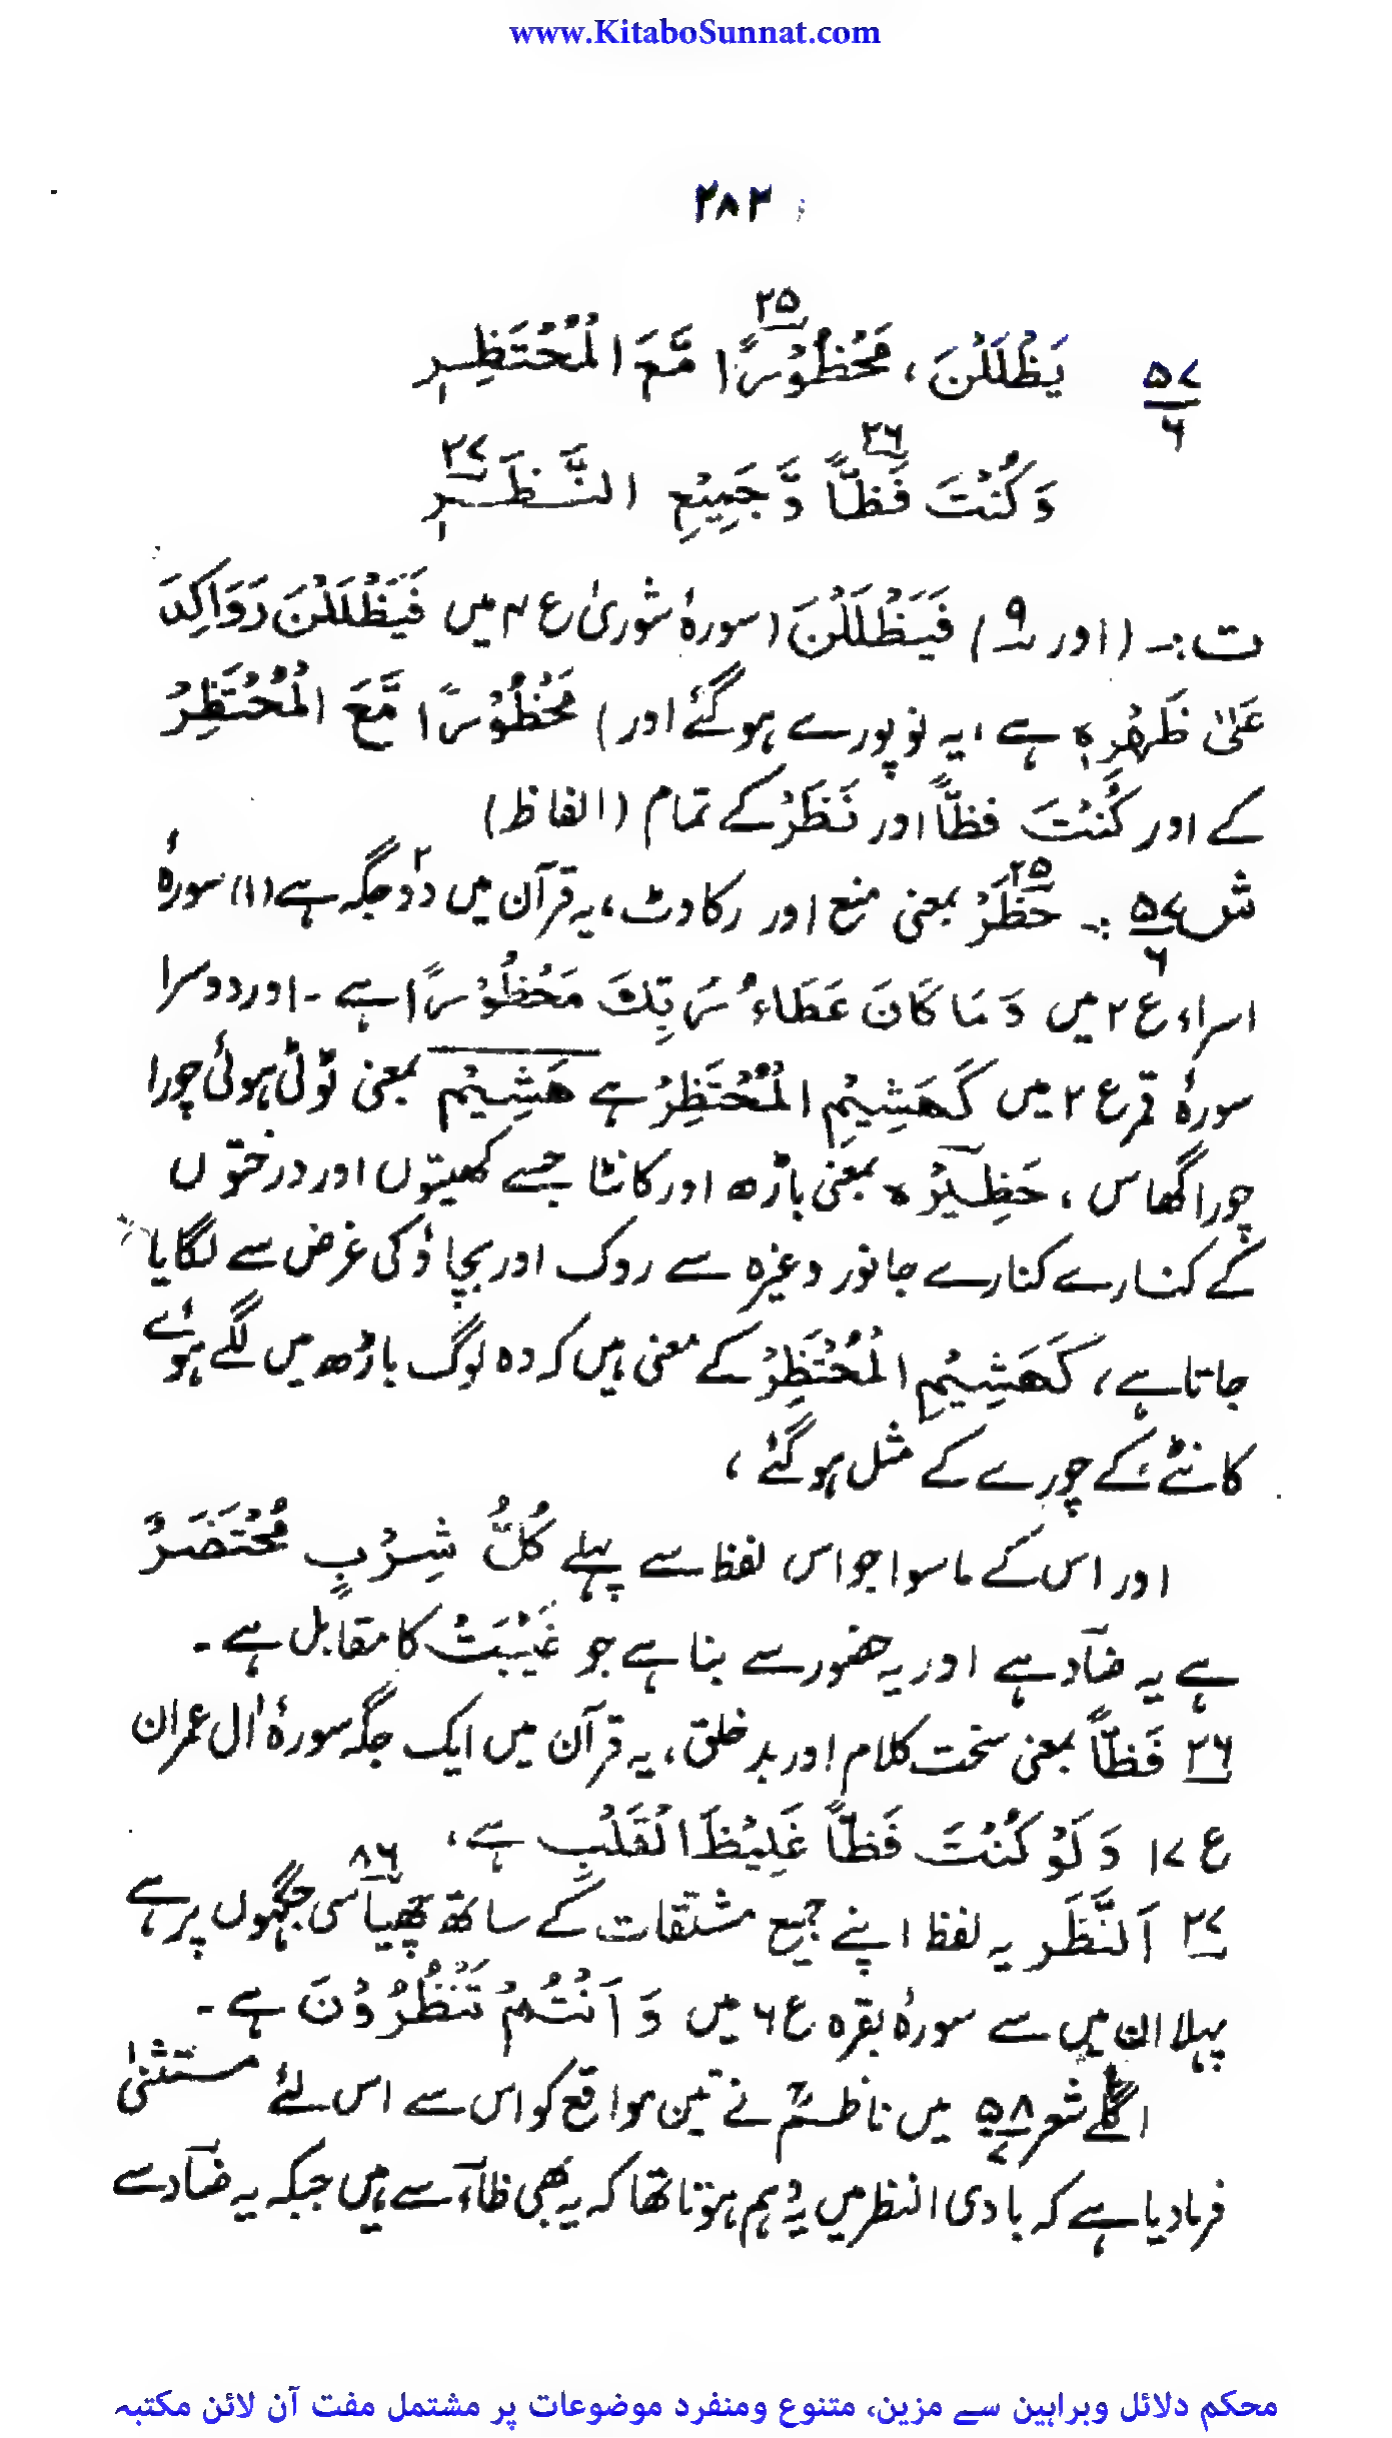 www.KitaboSunnat.com
۲۸۳
۵۷ يَظْلَلْنَ، مَحْظُوْرًا مَّعَ الْمُحْتَظِرِ ۲۵
۶
وَكُنْتَ فَظًّا وَّجَمِيْعِ النَّظَرِ ۲۶ ۲۷
ت:۔ (اور ۹) فَيَظْلَلْنَ (سورۂ شوریٰ ع ۴ میں فَيَظْلَلْنَ رَوَاكِدَ
عَلٰى ظَهْرِهٖ ہے، یہ نو پورے ہوگئے اور) مَحْظُوْرًا مَّعَ الْمُحْتَظِرْ
کے اور كُنْتَ فظًّا اور نَظَرْ کے تمام (الفاظ)
ش ۵۷/۶ :۔ ۲۵ حَظَرَ بمعنی منع اور رکاوٹ، یہ قرآن میں دو۲ جگہ ہے (۱) سورۂ
اسراء ع ۲ میں وَمَا كَانَ عَطَاءُ رَبِّكَ مَحْظُوْرًا ہے ۔ اور دوسرا
سورۂ قمر ع ۲ میں كَهَشِيْمِ الْمُحْتَظِرْ ہے هَشِيْم بمعنی ٹوٹی ہوئی چورا
چورا گھاس، حَظِيْرَه بمعنی باڑھ اور کانٹا جسے کھیتوں اور درختوں
کے کنارے کنارے جانور وغیرہ سے روک اور بچاؤ کی غرض سے لگایا
جاتا ہے، كَهَشِيْمِ الْمُحْتَظِرْ کے معنی ہیں کہ وہ لوگ باڑھ میں لگے ہوئے
کانٹے کے چورے کے مثل ہوگئے،
اور اس کے ماسوا جو اس لفظ سے پہلے كُلُّ شِرْبٍ مُّحْتَضَرٌ
ہے یہ ضآد ہے اور یہ حضور سے بنا ہے جو غَيْبَتْ کا مقابل ہے ۔
۲۶ فَظًّا بمعنی سخت کلام اور بدخلق، یہ قرآن میں ایک جگہ سورۂ اٰل عمران
ع ۱۷ وَلَوْ كُنْتَ فَظًّا غَلِيْظَ الْقَلْبِ ہے،
۲۷ اَلنَّظَر یہ لفظ اپنے جمیع مشتقات کے ساتھ چھیاسی ۸۶ جگہوں پر ہے
پہلا ان میں سے سورۂ بقرہ ع ۶ میں وَاَنْتُمْ تَنْظُرُوْنَ ہے ۔
اگلے شعر ۵۸/۷ میں ناظمؒ نے تین مواقع کو اس سے اس لئے مستثنیٰ
فرمادیا ہے کہ بادی النظر میں یہ وہم ہوتا تھا کہ یہ بھی ظآء سے ہیں جبکہ یہ ضآد سے
محکم دلائل وبراہین سے مزین، متنوع ومنفرد موضوعات پر مشتمل مفت آن لائن مکتبہ